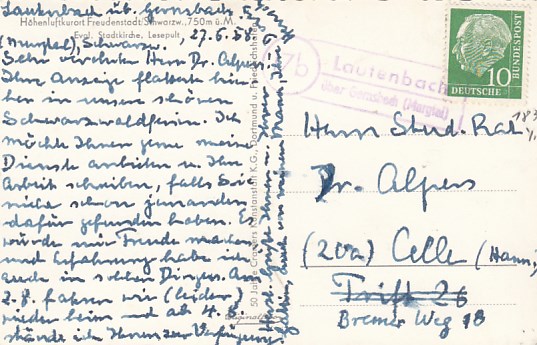 Lautenbach üb. Gernsbach
Höhenluftkurort Freudenstadt/Schwarzw., 750m ü.M.
Evgl. Stadtkirche, Lesepult
(Murgtal), Schwarzw., 27.6.58.
Sehr verehrter Herr Dr. Alpers,
Ihre Anzeige flatterte hin
her in unsere schönen
Schwarzwaldferien. Ich
möchte Ihnen gerne meine
Dienste anbieten u. Ihre
Arbeit schreiben, falls Sie
nicht schon jemanden
dafür gefunden haben. Es
würde mir Freude machen
und Erfahrung habe ich
auch in solchen Dingen. Am
2.8. fahren wir (leider)
wieder heim und ab 4.8.
stände ich Ihnen zur Verfügung.
Herzl. Grüße Ihnen u. Ihrer
auch von meinem Mann, Ihre
50 Jahre Cramers Kunstanstalt K.G., Dortmund u.
7b
Lautenbach
über Gernsbach (Murgtal)
DEUTSCHE
BUNDESPOST
10
Herrn Stud. Rat
Dr. Alpers
(20a) Celle (Hann.)
Trift 26
Bremer Weg 18